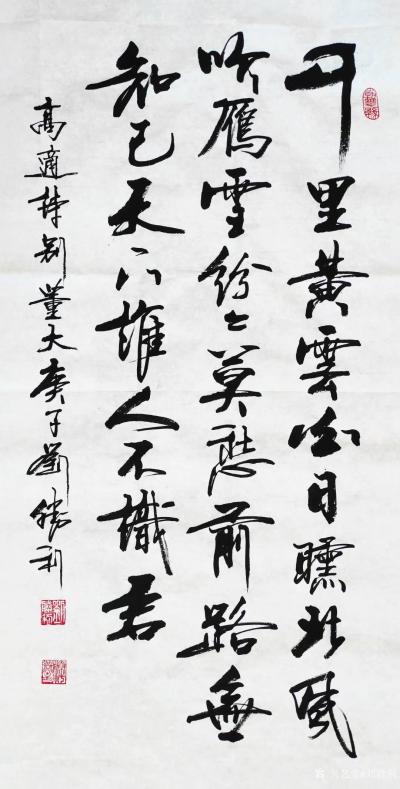 千里黄雲白日曛北風
吹鴈雪紛々莫愁前路無
知己天下誰人不識君
高適詩别董大庚子劉勝利